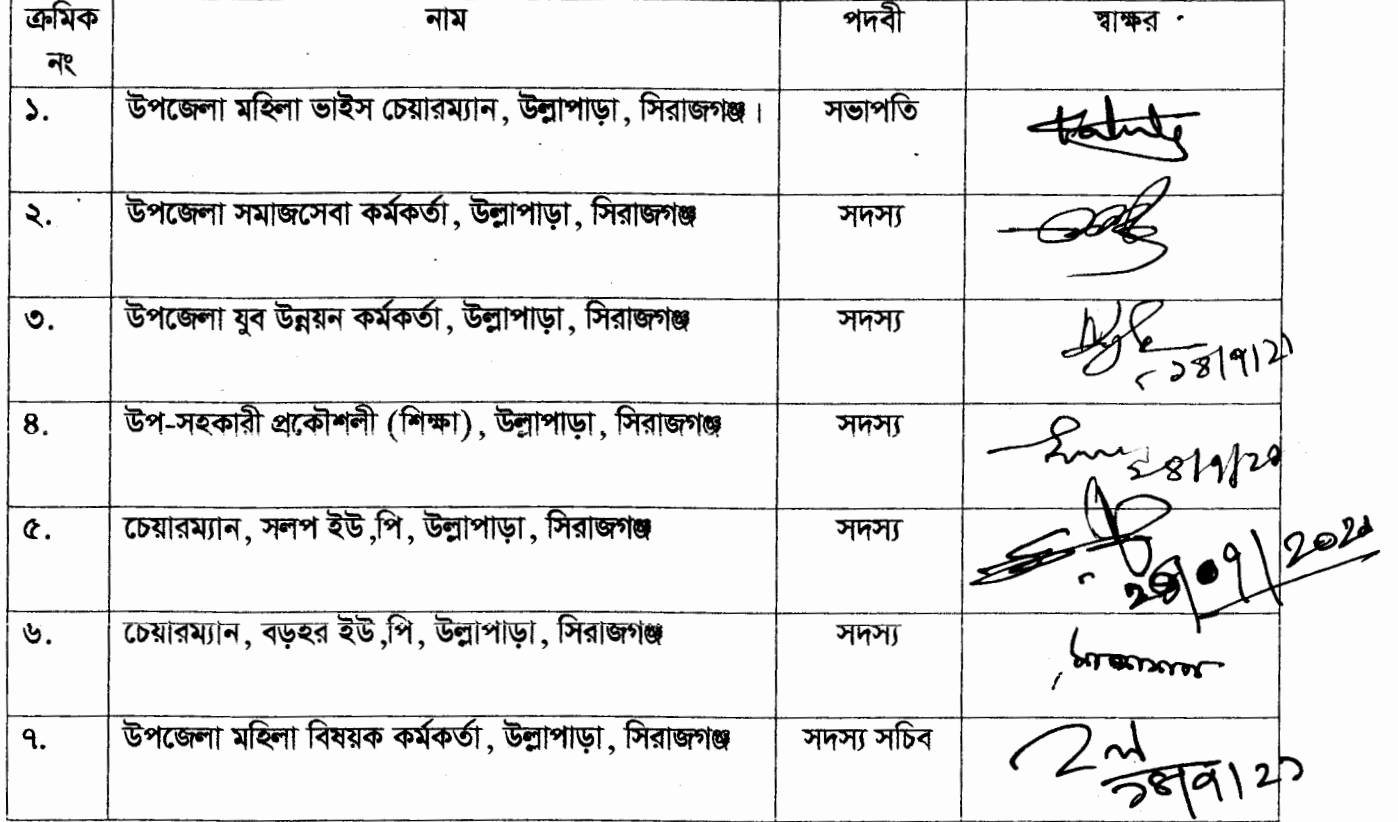 ক্রমিক নং	নাম	পদবী	স্বাক্ষর
১.	উপজেলা মহিলা ভাইস চেয়ারম্যান, উল্লাপাড়া, সিরাজগঞ্জ।	সভাপতি
২.	উপজেলা সমাজসেবা কর্মকর্তা, উল্লাপাড়া, সিরাজগঞ্জ	সদস্য
৩.	উপজেলা যুব উন্নয়ন কর্মকর্তা, উল্লাপাড়া, সিরাজগঞ্জ	সদস্য	১৪/৭/২১
৪.	উপ-সহকারী প্রকৌশলী (শিক্ষা), উল্লাপাড়া, সিরাজগঞ্জ	সদস্য
৫.	চেয়ারম্যান, সলপ ইউ,পি, উল্লাপাড়া, সিরাজগঞ্জ	সদস্য
৬.	চেয়ারম্যান, বড়হর ইউ,পি, উল্লাপাড়া, সিরাজগঞ্জ	সদস্য
৭.	উপজেলা মহিলা বিষয়ক কর্মকর্তা, উল্লাপাড়া, সিরাজগঞ্জ	সদস্য সচিব	১৪/৭/২১